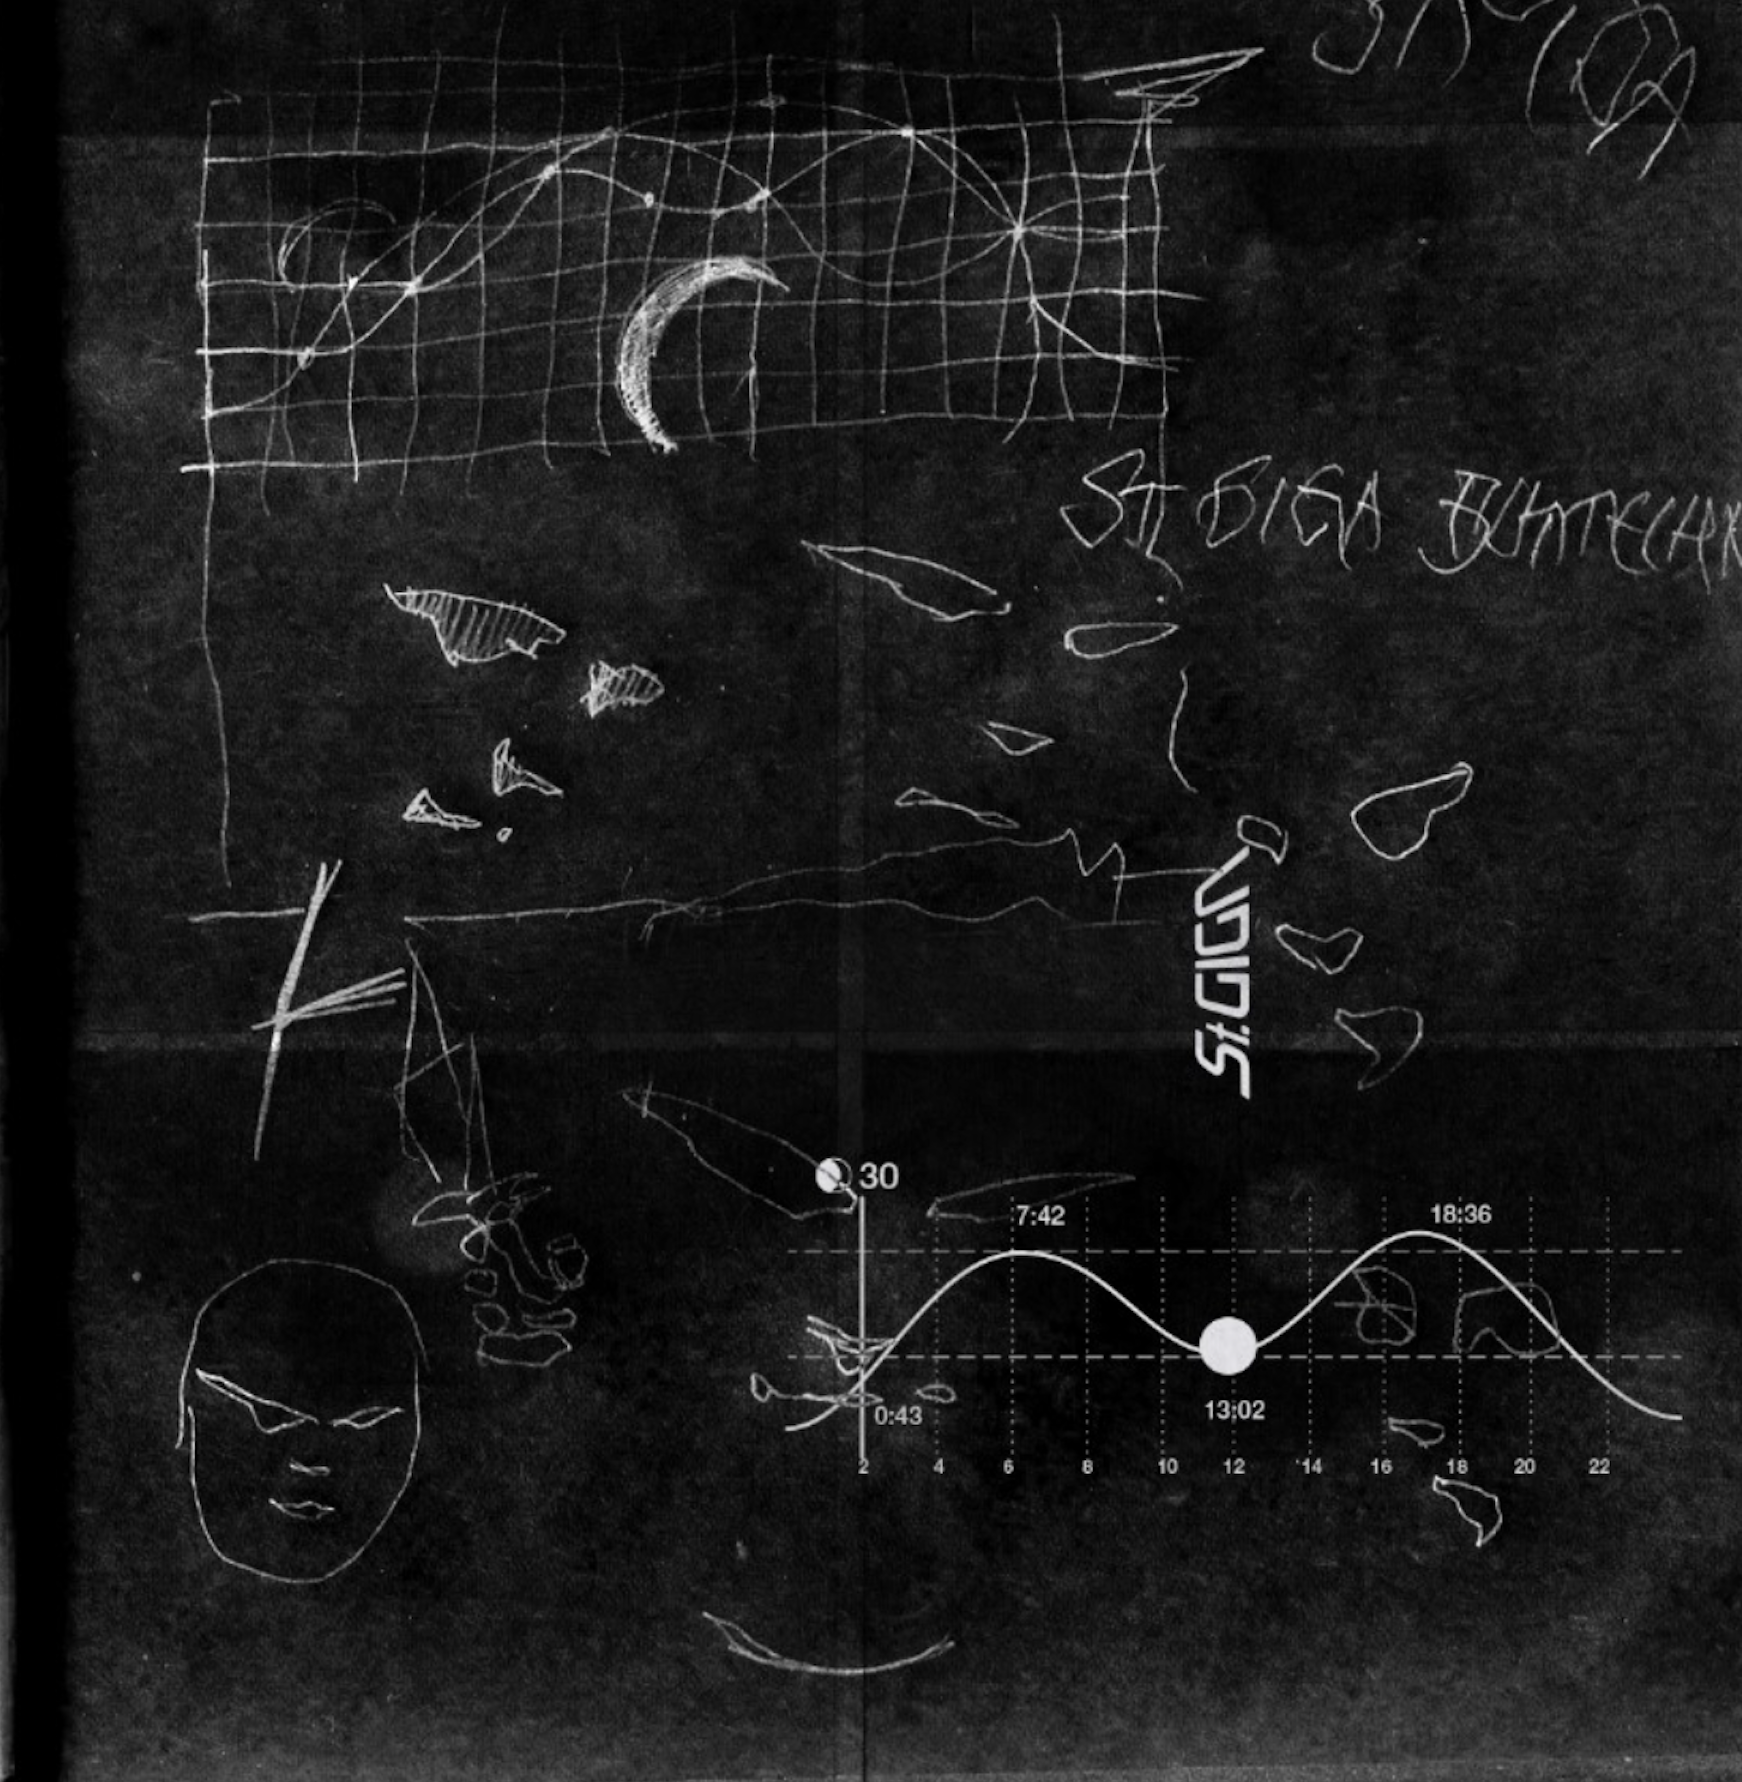 ST GIGA
St.GIGA
30
7:42
18:36
0:43
13:02
2 4 6 8 10 12 14 16 18 20 22